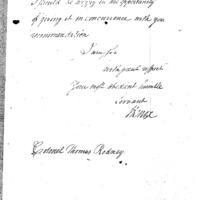 I should be happy in the opportunity
of giving it in concurrence with your
recommendation
I am Sir
with great respect
Your most obedient humble
servant
HKnox
Colonel Thomas Rodney